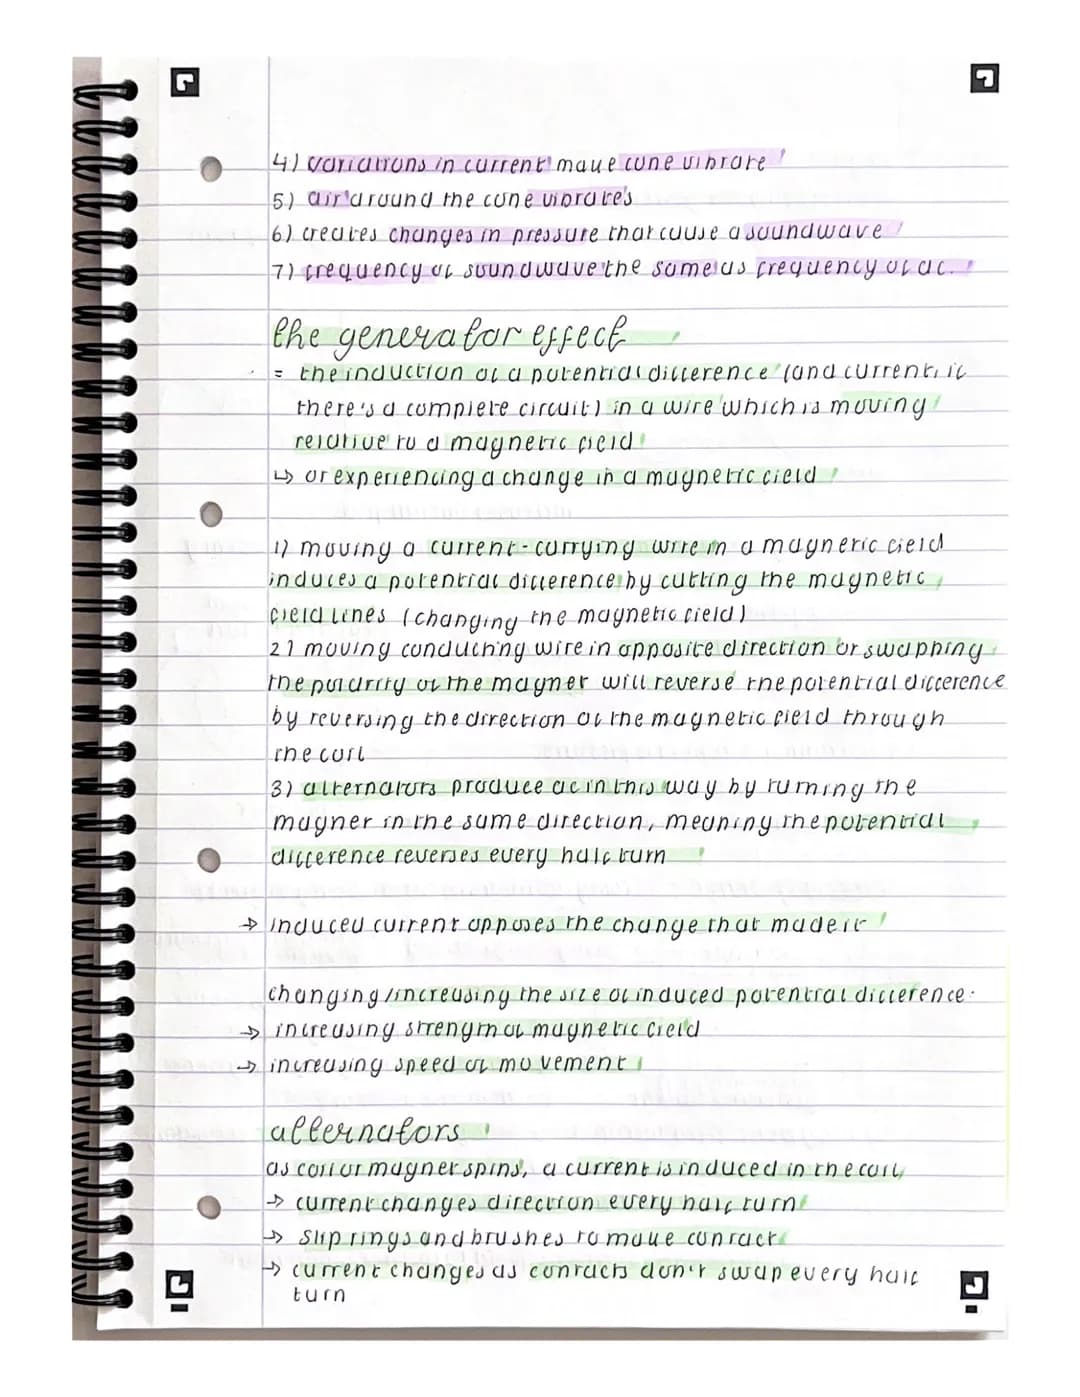 4) variations in current make cone vibrate
5) air around the cone vibrates
6) creates changes in pressure that cause a soundwave
7) frequency of soundwave the same as frequency of ac.
the generator effect
= the induction of a potential difference (and current, if
there's a complete circuit) in a wire which is moving
relative to a magnetic field
↳ or experiencing a change in a magnetic field
1) moving a current-carrying wire in a magnetic field
induces a potential difference by cutting the magnetic
field lines (changing the magnetic field)
2) moving conducting wire in opposite direction or swapping
the polarity of the magnet will reverse the potential difference
by reversing the direction of the magnetic field through
the coil
3) alternators produce ac in this way by turning the
magnet in the same direction, meaning the potential
difference reverses every half turn
→ induced current opposes the change that made it
changing/increasing the size of induced potential difference:
→ increasing strength of magnetic field
→ increasing speed of movement
alternators
as coil or magnet spins, a current is induced in the coil
→ current changes direction every half turn
→ slip rings and brushes to make contact
→ current changes as contacts don't swap every half
turn